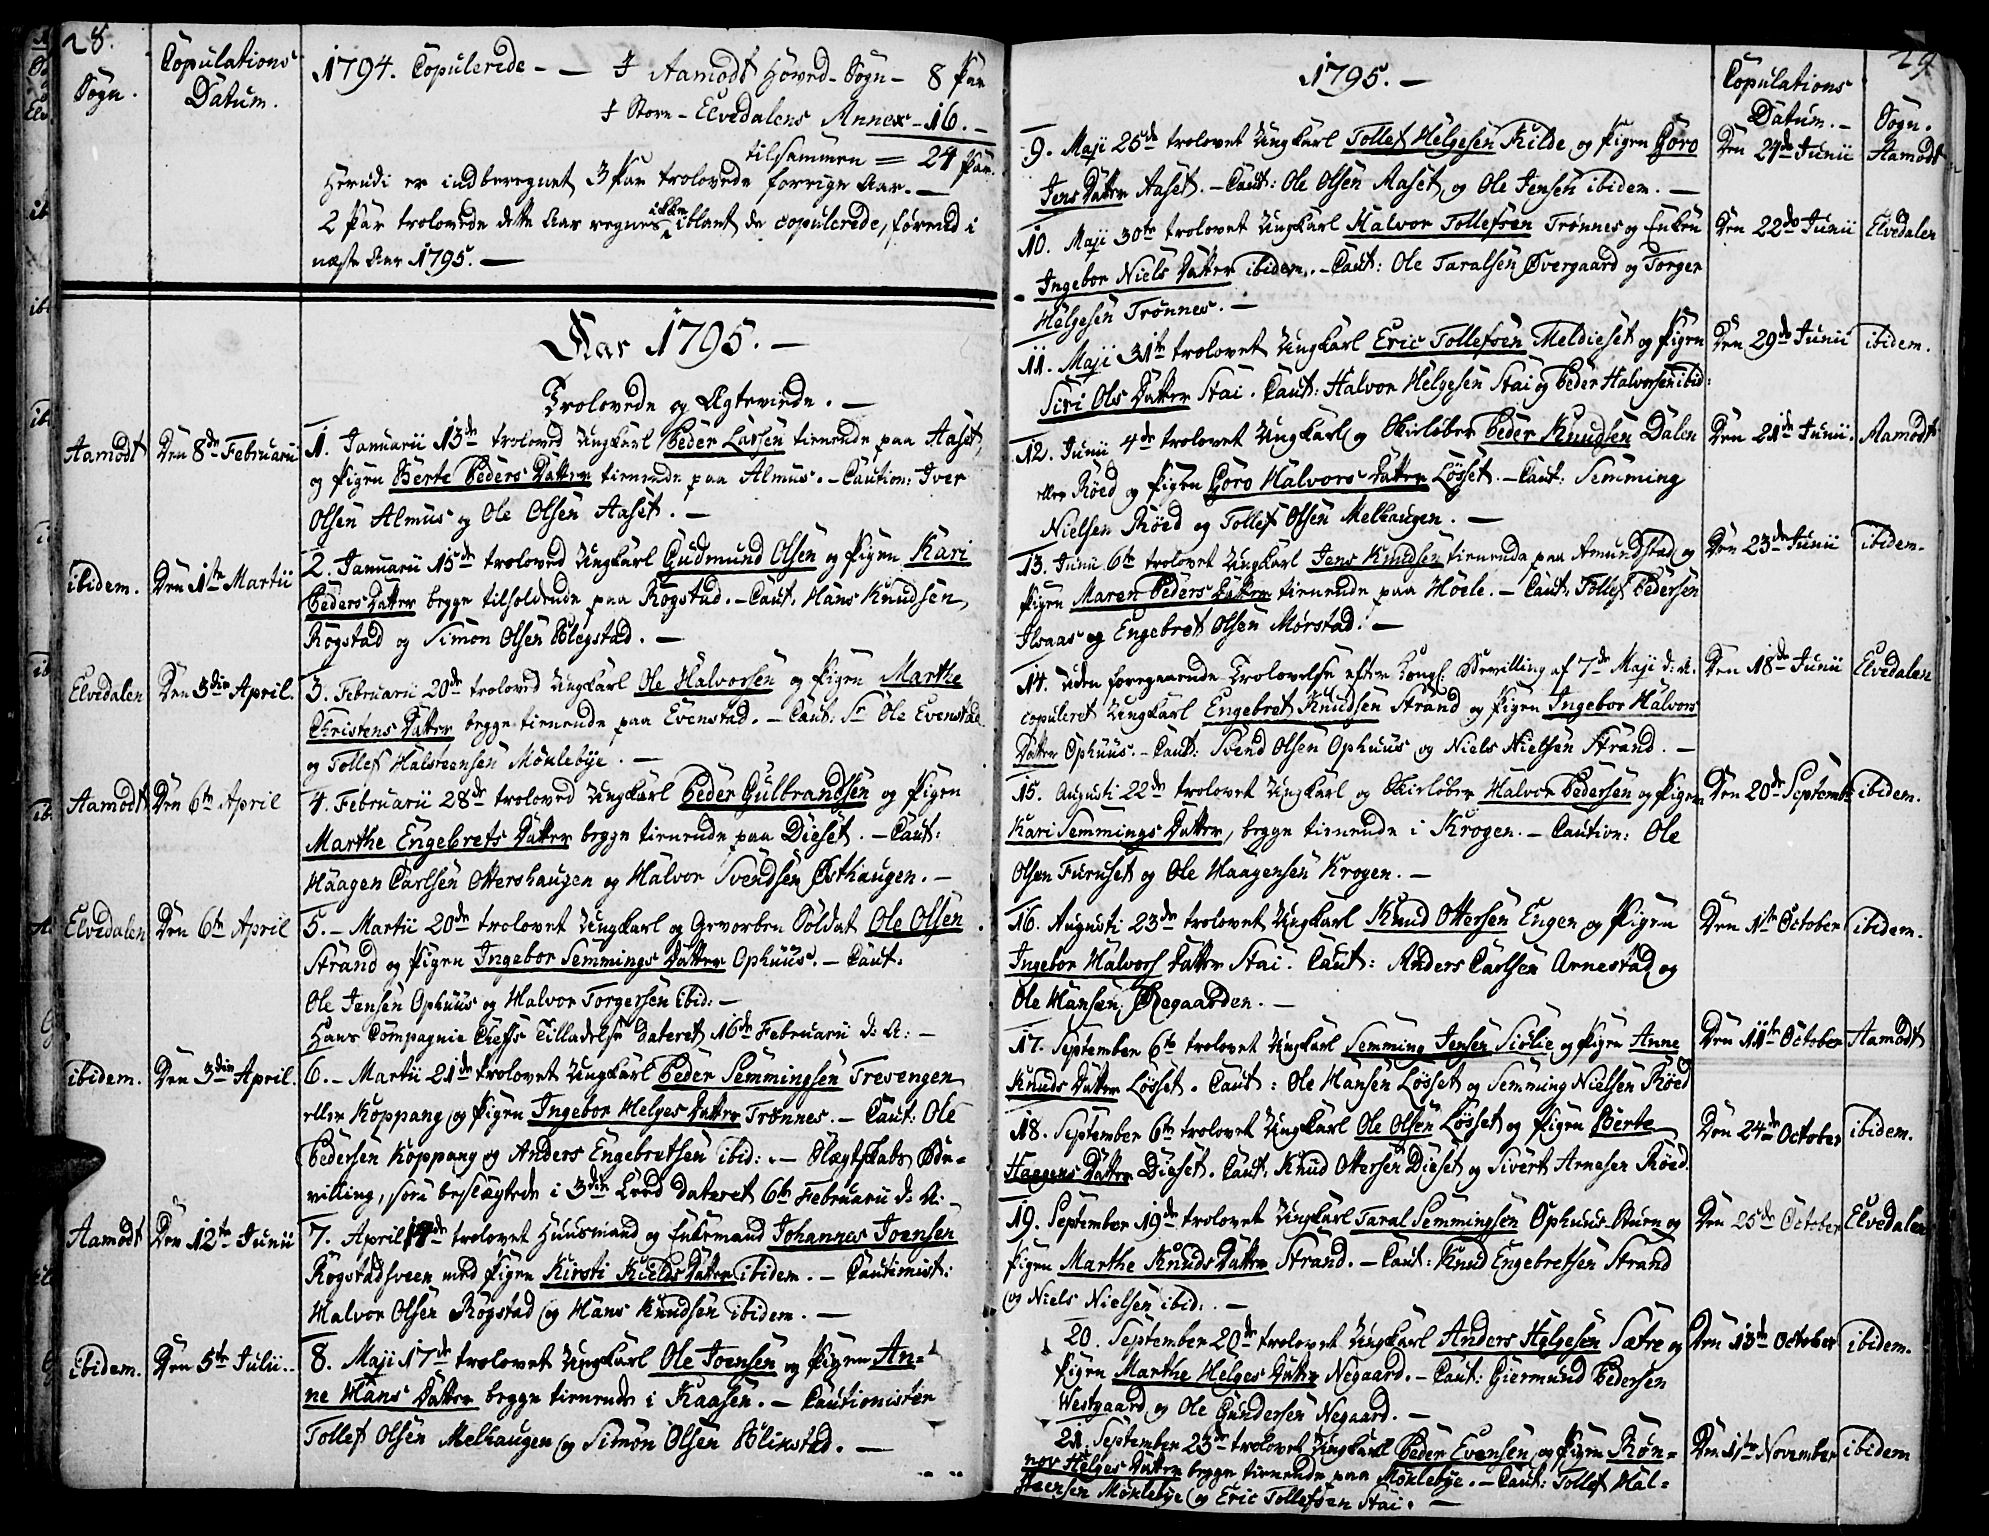 28.
Sogn.
Copulations
Datum.
1794. Copulerede - - I Aamodt Hoved-Sogn - 8 Par
I Store-Elvedalens Annex - 16. -
tilsammen = 24 Par.
Herudi er indberegnet 3 Par trolovede forrige Aar. -
2 Par trolovede dette Aar regnes ikke iblant de copulerede, förend i
næste Aar 1795. -
Aar 1795. -
Trolovede og Ægteviede. -
Aamodt Den 8de Februarii
1. Januarii 13de troloved Ungkarl Peder Larsen tienende paa Aaset,
og Pigen Berte Peders Datter tienende paa Almus. - Caution: Iver
Olsen Almus og Ole Olsen Aaset. -
ibidem. Den 1te Martii
2. Januarii 15de troloved Ungkarl Gudmund Olsen og Pigen Kari
Peders Datter begge tilholdende paa Rogstad. - Caut. Hans Knudsen
Rogstad og Simon Olsen Blegstad. -
Elvedalen Den 3die April.
3. Februarii 20de troloved Ungkarl Ole Halvorsen og Pigen Marthe
Christens Datter begge tienende paa Evenstad. - Caut: Sr Ole Evenstad
og Tollef Halsteensen Möklebye. -
Aamodt Den 6te April
4. Februarii 28de troloved Ungkarl Peder Gulbrandsen og Pigen
Marthe Engebrets Datter begge tienende paa Dieset. - Caut:
Haagen Carlsen Ottershaugen og Halvor Svendsen Østhaugen. -
Elvedalen Den 6te April
5. - Martii 20de trolovet Ungkarl og Gevorben Soldat Ole Olsen
Strand og Pigen Ingebor Semmings Datter Ophuus. - Caut.
Ole Jensen Ophuus og Halvor Torgersen ibid: -
Hans Compagnie Cheffs Tilladelse dateret 16de Februarii d: A: -
ibidem. Den 3die April.
6. - Martii 21de trolovet Ungkarl Peder Semmingsen Trevengen
eller Koppang og Pigen Ingebor Helges Datter Trønnes. - Caut: Ole
Pedersen Koppang og Anders Engebretsen ibid: . - Slægtskabs Be-
villing, som beslægtede i 3die Leed dateret 6te Februarii d: A: -
Aamodt Den 12te Junii
7. April de trolovet Huusmand og Enkemand Johannes Joensen
Rogstadsveen med Pigen Kirsti Kields Datter ibidem. - Cautionist:
Halvor Olsen Rogstad og Hans Knudsen ibidem. -
ibidem. Den 5te Julii. -
8. Maji 17de trolovet Ungkarl Ole Joensen og Pigen An-
ne Hans Datter begge tienende i Kaasen. - Cautionister
Tollef Olsen Melhaugen og Simon Olsen Blikstad. -
1795. -
Copulations
Datum. -
29.
Sogn.
9. Maji 25de trolovet Ungkarl Tollef Helgesen Kilde og Pigen Goro Den 24de Junii Aamodt
Jens Datter Aaset. - Caut: Ole Olsen Aaset, og Ole Jensen ibidem. -
10. Maji 30te trolovet Ungkarl Halvor Tollefsen Trønnes og Enken Den 22de Junii Elvedalen
Ingebor Niels Datter ibidem. - Caut: Ole Taralsen Øvergaard og Torger
Helgesen Trønnes. -
11. Maji 31te trolovet Ungkarl Eric Tollefsen Meldieset og Pigen Den 29de Junii ibidem.
Siri Ols Datter Stai. Caut: Halvor Helgesen Stai og Peder Halvorsen ibid:
12. Junii 4de trolovet Ungkarl og Skirløber Peder Knudsen Dalen Den 21de Junii. Aamodt
eller Røed og Pigen Goro Halvors Datter Løsset. - Caut: Semming
Nielsen Røed og Tollef Olsen Melhaugen. -
13. Junii 6te trolovet Ungkarl Jens Knudsen tienende paa Amundstad og Den 23de Junii ibidem.
Pigen Maren Peders Datter tienende paa Hoele. - Caut. Tollef Pedersen
Ilvaas og Engebret Olsen Mørstad. -
14. Uden foregaaende Trolovelse efter Kongl: Bevilling af 7de Maji d: A: Den 18de Junii Elvedalen
copuleret Ungkarl Engebret Knudsen Strand og Pigen Ingebor Halvors
Datter Ophuus. - Caut: Svend Olsen Ophuus og Niels Nielsen Strand. -
15. Augusti 22de trolovet Ungkarl og Skirløber Halvor Pedersen og Pigen Den 20de Septemb: ibidem.
Kari Semmings Datter, begge tienende i Krogen. - Caution: Ole
Olsen Furuset og Ole Haagensen Krogen. -
16. Augusti 23de trolovet Ungkarl Knud Ottersen Engen og Pigen Den 1te October ibidem.
Ingebor Halvors Datter Stai. Caut: Anders Carlsen Arnestad og
Ole Hansen Ødegaarden. -
17. September 6te trolovet Ungkarl Semming Jensen Siølie og Pigen Anne Den 11te October Aamodt
Knuds Datter Løsset. Caut: Ole Hansen Løsset og Semming Nielsen Røed
18. September 6te trolovet Ungkarl Ole Olsen Løsset og Pigen Berte Den 24de October ibidem.
Haagens Datter Dieset. Caut. Knud Ottersen Dieset og Sivert Arnesen Røed.
19. September 19de trolovet Ungkarl Taral Semmingsen Ophuus Stuen og Den 25de October Elvedalen
Pigen Marthe Knuds Datter Strand. - Caut: Knud Engebretsen Strand
og Niels Nielsen ibid: . -
20. September 20de trolovet Ungkarl Anders Helgesen Sætre og Den 13de October ibidem.
Pigen Marthe Helges Datter Negaard. - Caut: Giermund Pedersen
Westgaard og Ole Gundersen Negaard. -
21. September 23de trolovet Ungkarl Peder Evensen og Pigen Røn- Den 11te November ibidem
nov Helges Datter begge tienende paa Møklebye. - Caut: Tollef Hal-
steensen Møklebye og Eric Tollefsen Stai. -